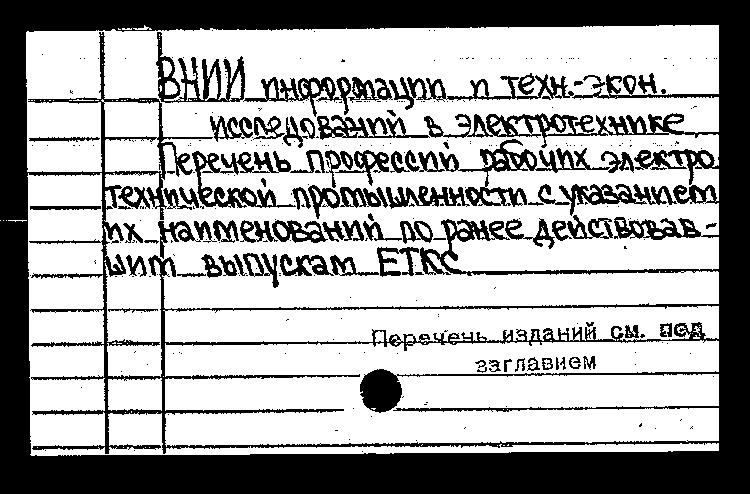 ВНИИ информации и техн.-экон.
исследований в электротехнике
Перечень профессий рабочих электро
технической промышленности с указанием
их наименований по ранее действовав-
шим выпускам ЕТКС
Перечень изданий см. под
заглавием